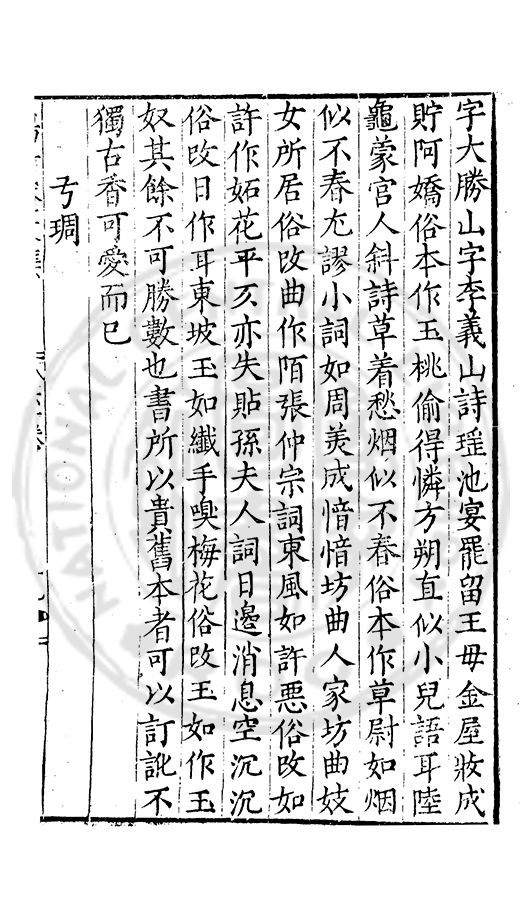 字大勝山字李義山詩瑶池宴罷留王母金屋妝成
貯阿嬌俗本作玉桃偷得憐方朔直似小兒語耳陸
龜蒙宮人斜詩草着愁烟似不春俗本作草尉如烟
似不春尢謬小詞如周美成愔愔坊曲人家坊曲妓
女所居俗攺曲作陌張仲宗詞東風如許惡俗攺如
許作妬花平仄亦失貼孫夫人詞日邊消息空沉沉
俗攺日作耳東坡玉如纖手嗅梅花俗攺玉如作玉
奴其餘不可勝數也書所以貴舊本者可以訂訛不
獨古香可愛而已
丂琱